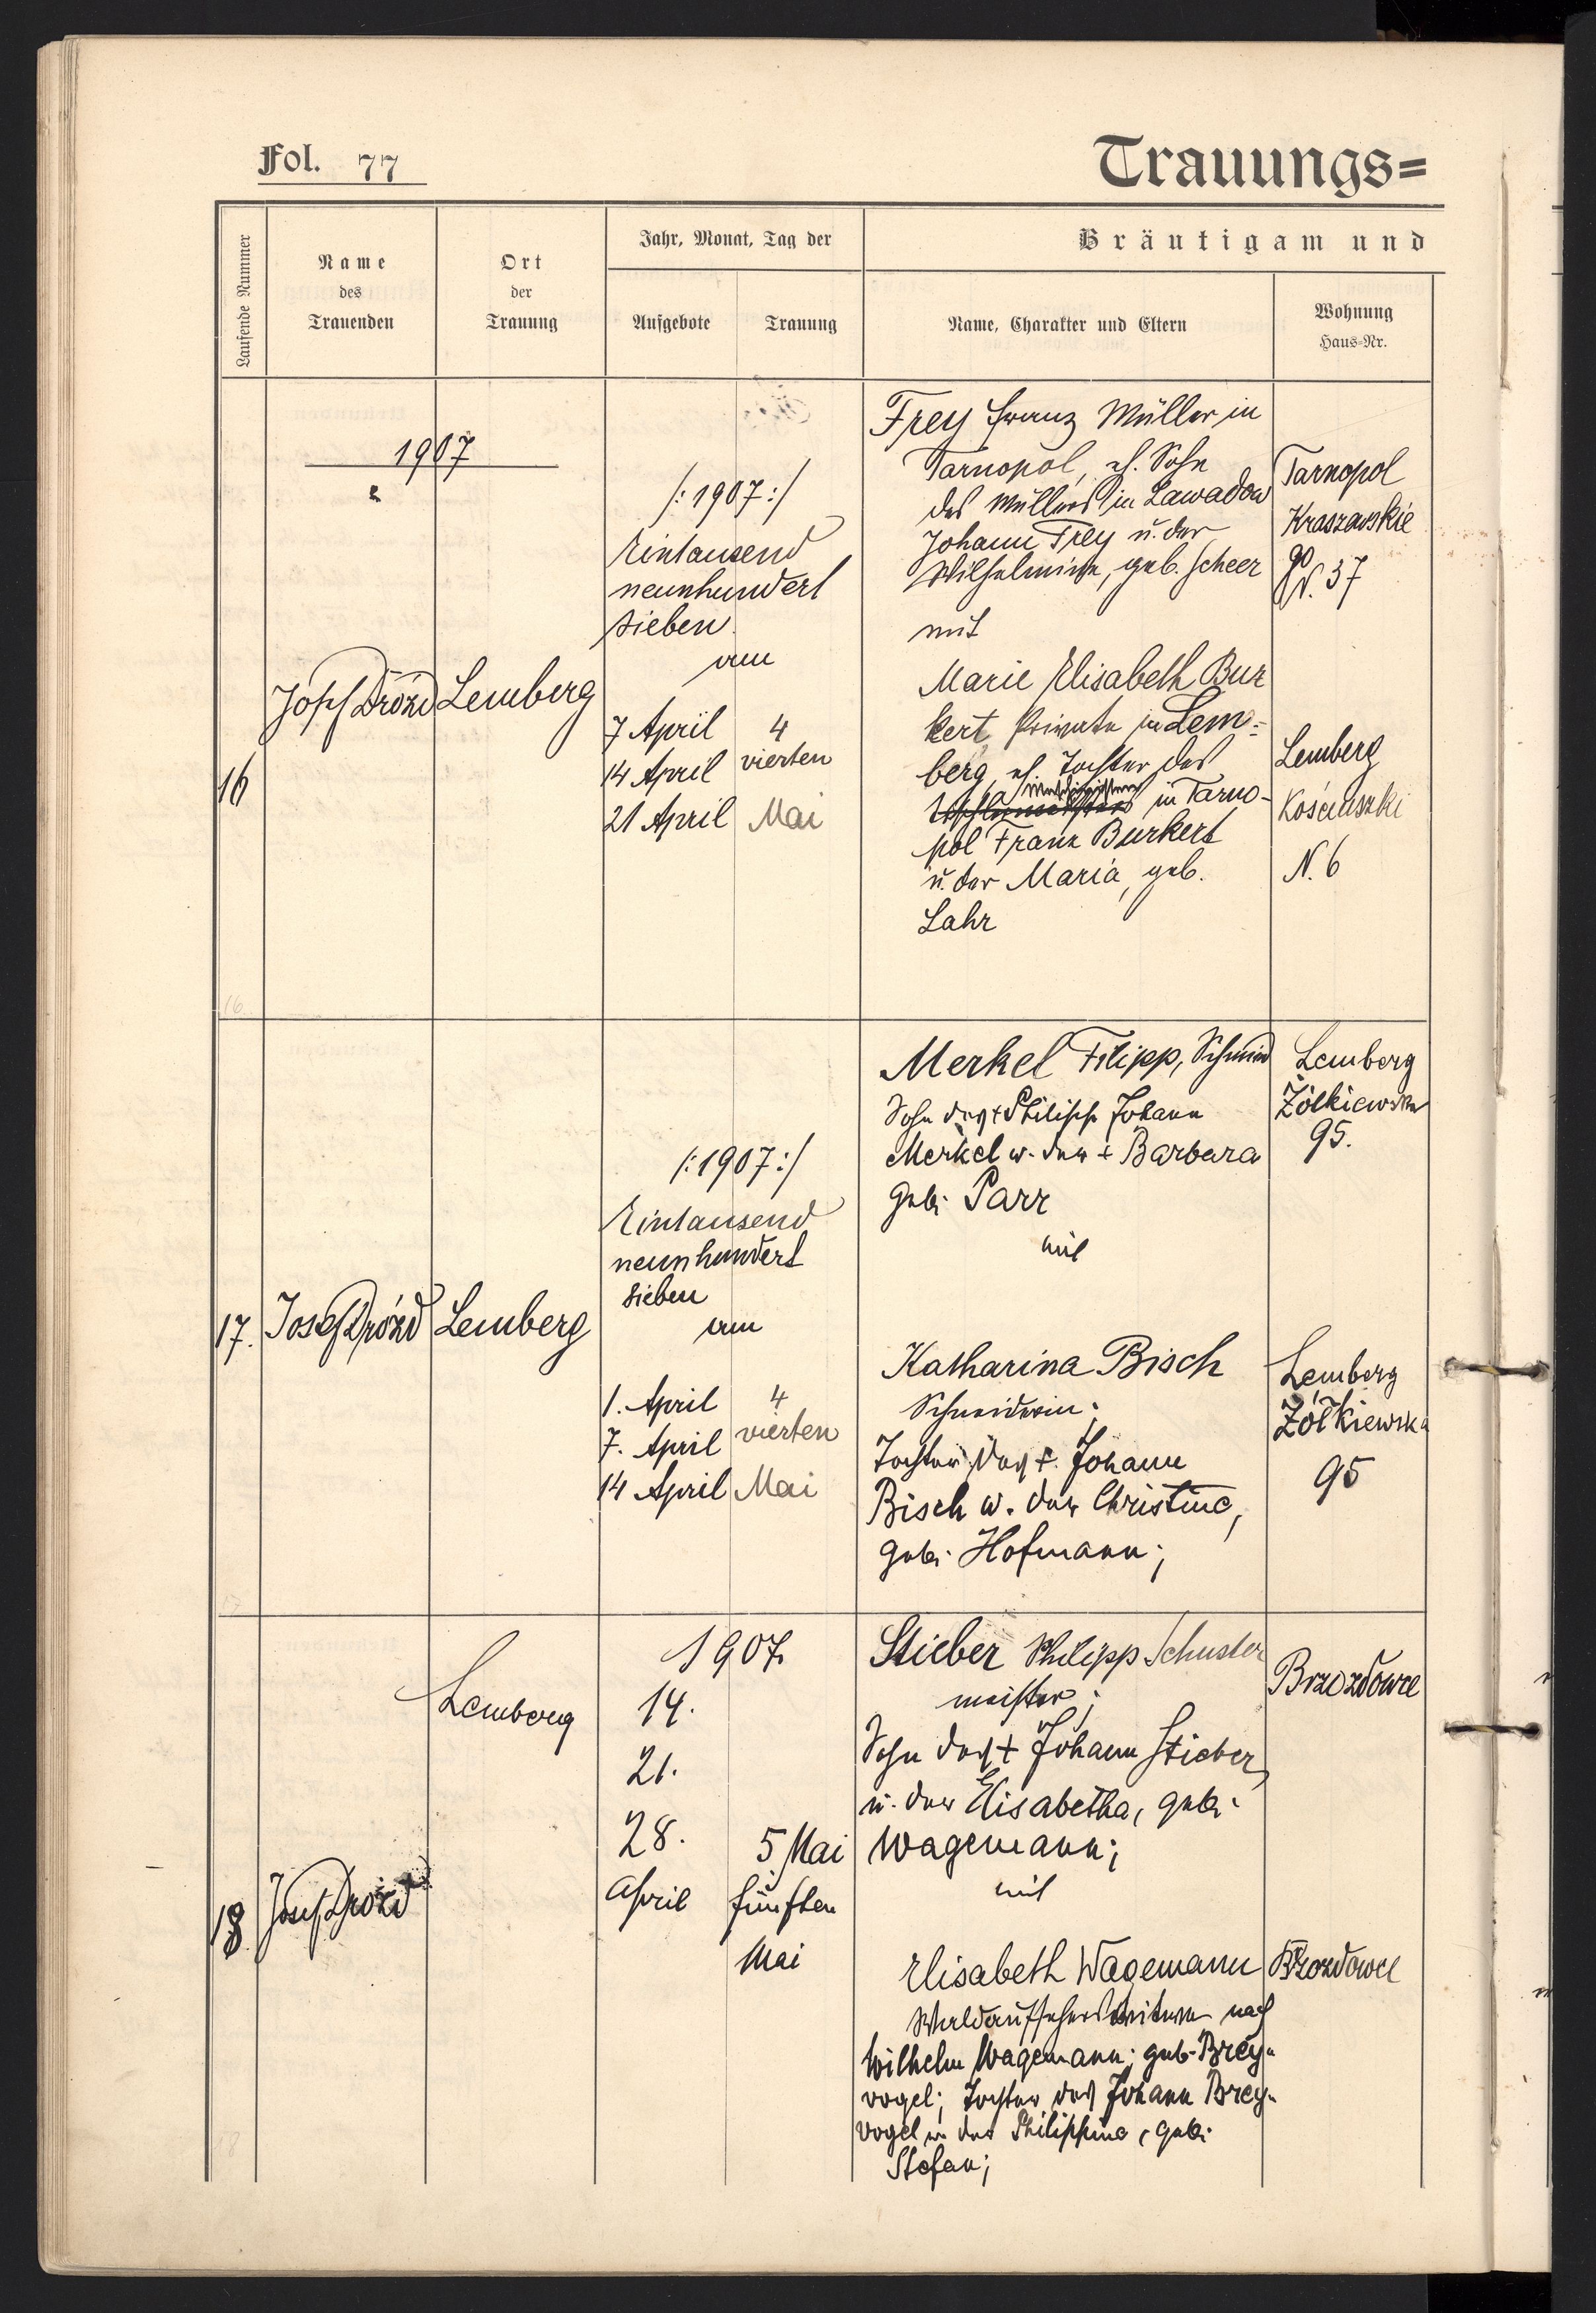 Fol. 77
Trauungs=
Laufende Nummer
Name
des
Trauenden
Ort
der
Trauung
Jahr, Monat, Tag der
Aufgebote
Trauung
Bräutigam und
Name, Charakter und Eltern
Wohnung
Haus-Nr.
1907
16
Josef Drózd
Lemberg
/:1907:/
Eintausend
neunhundert
sieben
am
7 April
14 April
21 April
4
vierten
Mai
Frey Franz Müller in
Tarnopol, eh. Sohn
des Müllers in Lawadow
Johann Frey u. der
Wilhelmine, geb. Scheer
mit
Marie Elisabeth Bur
kert Private in Lem=
berg, eh. Tochter des
in Tarno-
pol Franz Burkert
u. der Maria, geb.
Lahr
Tarnopol
Kraszewskie
go
N. 37
Lemberg
Kościuszki
N. 6
16
17.
Josef Drózd
Lemberg
/:1907:/
Eintausend
neunhundert
sieben
am
1. April
7. April
14 April
4
vierten
Mai
Merkel Filipp, Schmied
Sohn des + Philipp Johann
Merkel u. der + Barbara
geb. Parr
mit
Katharina Bisch
Schneiderin;
Tochter des +. Johann
Bisch u. der Christine,
geb. Hofmann;
Lemberg
Żółkiewska
95.
Lemberg
Żółkiewska
95
17
18
Josef Drózd
Lemberg
1907
14.
21.
28.
April
5 Mai
fünften
Mai
Stieber Philipp Schuster
meister;
Sohn des + Johann Stieber
u. der Elisabetha, geb.
Wagemann;
mit
Elisabeth Wagemann
Waldaufseherswitwe nach
Wilhelm Wagemann; geb. Brey-
vogel; Tochter des Johann Brey-
vogel u. der Philippine, geb.
Stefan;
Brzozdowce
Brzozdowce
18